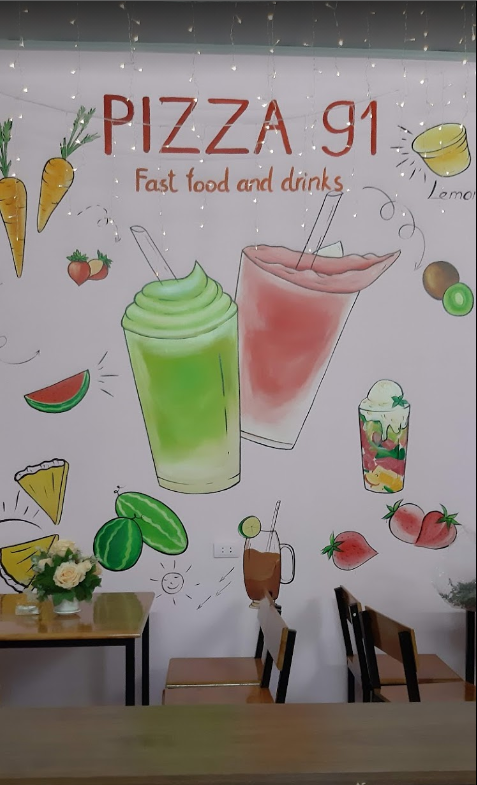 PIZZA 91
Fast food and drinks